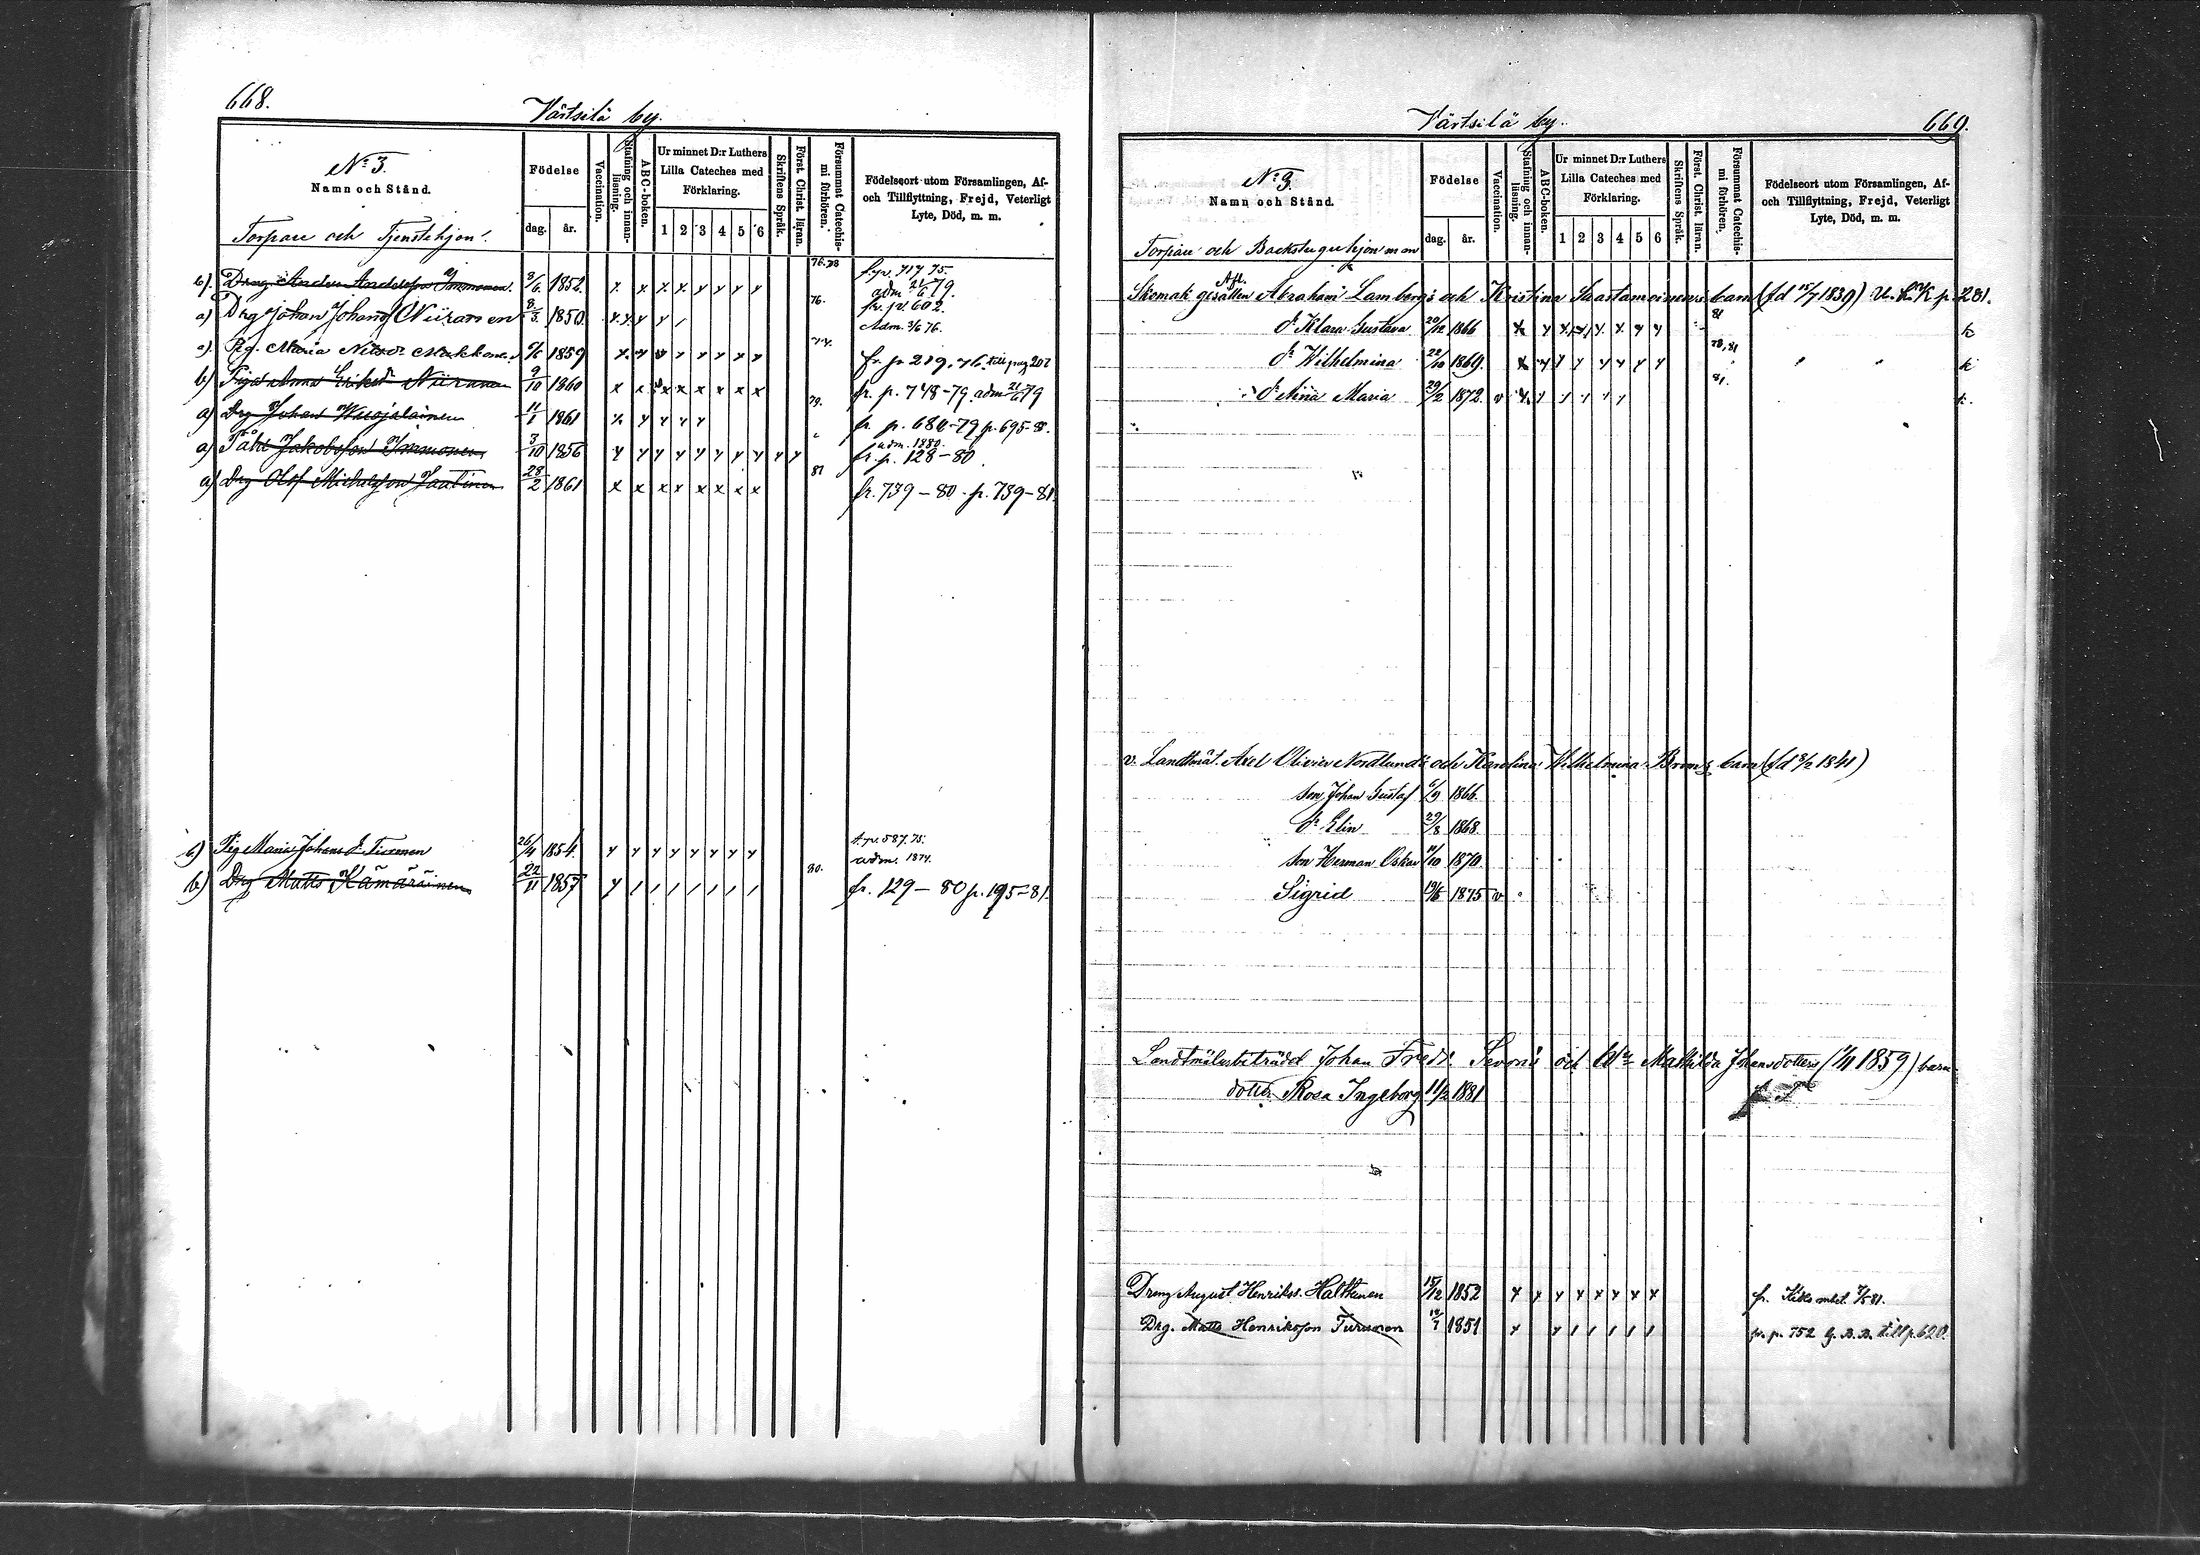 668.
Värtsilä by.
No 3.
Namn och Stånd.
Torpare och Tjenstehjon.
Födelse
dag. år.
Vaccination.
Stafning och innanläsning.
ABC-boken.
Ur minnet D:r Luthers Lilla Cateches med Förklaring.
1 2 3 4 5 6
Skriftens Språk.
Först. Christ. läran.
Försummat Catechismi förhören.
Födelseort utom Församlingen, Af- och Tillflyttning, Frejd, Veterligt Lyte, Död, m. m.
b). Dreng Anders Andersson Immonen 3/6 1852 x x x x y y y y 76.78 fr. p. 717 75. adm 21/6 79.
a) Drg Johan Johans Niiranen 8/3 1850 76. fr. p. 602. Adm. 3/6 76.
Pig. Maria Nilsdr Makkonen 1859 77. fr. p. 219. 76. till pag 207
b) Piga Anna Eriksdr Niiranen 9/10 1860 x x x x x x x x fr. p. 748-79 adm 21/6 79
a) Drg Johan Wuojalainen 11/1 1861 x y y y y 79. fr. p. 680-79 p. 695-8.
a) Påhl Jakobsson Immonen 3/10 1856 y y y y y y y y y y adm. 1880. fr. p. 128-80
a) Drg Olof Michelsson Jaatinen 28/2 1861 x x x x x x x x 81 fr. 739-80. p. 739-81.
b) Pig Maria Johans d. Tiainen 26/4 1854 y y y y y y y y f. p. 587. 75. adm. 1874.
b) Drg Matts Kämäräinen 22/11 1857 y / / / / / / / 80. fr. 129-80 p. 195-81.
Värtsilä by.
669.
No 3.
Namn och Stånd.
Torpare och Backstuguhjon m m
Födelse
dag. år.
Vaccination.
Stafning och innanläsning.
ABC-boken.
Ur minnet D:r Luthers Lilla Cateches med Förklaring.
1 2 3 4 5 6
Skriftens Språk.
Först. Christ. läran.
Försummat Catechismi förhören.
Födelseort utom Församlingen, Af- och Tillflyttning, Frejd, Veterligt Lyte, Död, m. m.
Skomak gesällen Afl. Abraham Lambergs och Kristina Saastamoinens barn (fd 15/7 1839) p. 281.
dr Klara Gustava 20/12 1866 81
dr Wilhelmina 22/10 1869 78,81
dr Miina Maria 29/2 1872 v 81.
v. Landtmät. Axel Olivier Nordlunds och Karolina Wilhelmina barn (fd 8/2 1841)
Son Johan Gustaf 6/9 1866.
dr Elin 29/8 1868
Son Herman Oskar 11/10 1870
Sigrid 19/6 1875 v
Landtmätebiträdet Johan Fredr. och Mathilda Johansdotters (1859) barn
dotter Rosa Ingeborg 11/2 1881
Dreng August Henrikss. Halttunen 15/12 1852 y y y y y y y y
Drg. Matts Henriksson Turunen 12/7 1851 y y / / / / / fr. p. 752 G. B. B. till p. 620.